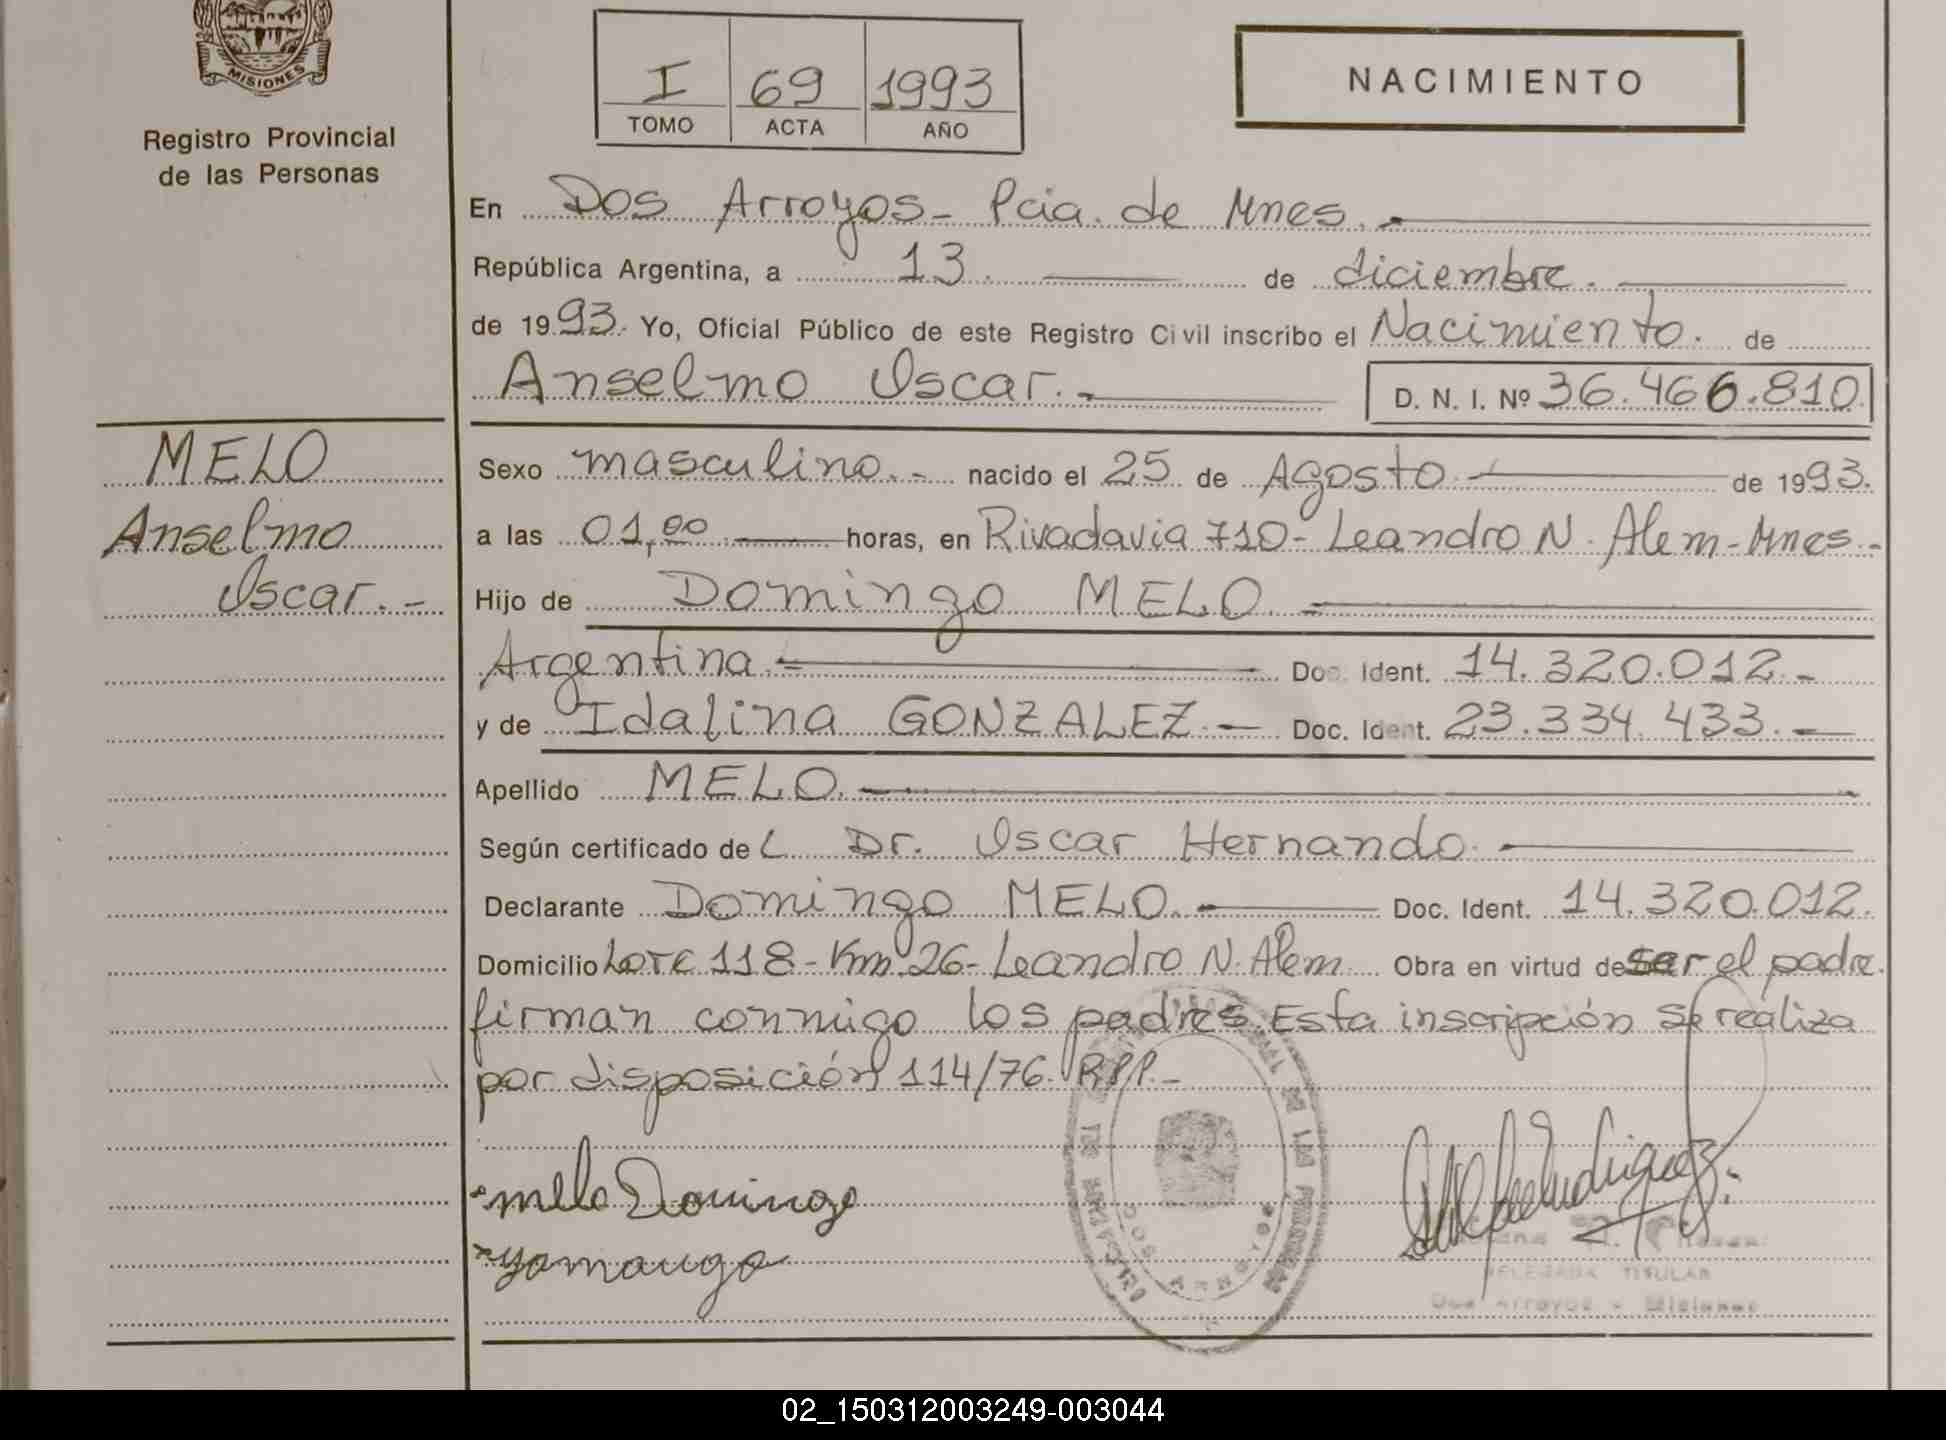 MISIONES
Registro Provincial
de las Personas
I 69 1993
TOMO ACTA AÑO
NACIMIENTO
En Dos Arroyos - Pcia. de Mnes.
República Argentina, a 13. de diciembre.
de 1993. Yo, Oficial Público de este Registro Civil inscribo el Nacimiento. de
Anselmo Oscar. D. N. I. Nº 36.466.810.
MELO
Anselmo
Oscar.-
Sexo masculino.- nacido el 25 de Agosto de 1993.
a las 01,00 horas, en Rivadavia 710- Leandro N. Alem - Mnes.-
Hijo de Domingo MELO.
Argentina. Doc. Ident. 14.320.012.-
y de Idalina GONZALEZ.- Doc. Ident. 23.334.433.-
Apellido MELO.
Según certificado del Dr. Oscar Hernando.
Declarante Domingo MELO. Doc. Ident. 14.320.012.
Domicilio Lote 118 - Km 26- Leandro N. Alem Obra en virtud de ser el padre.
firman conmigo los padres. Esta inscripción se realiza
por disposición 114/76. RPP.-
melo Domingo
DOS ARROYOS
DELEGADA TITULAR
Dos Arroyos - Misiones
02_150312003249-003044